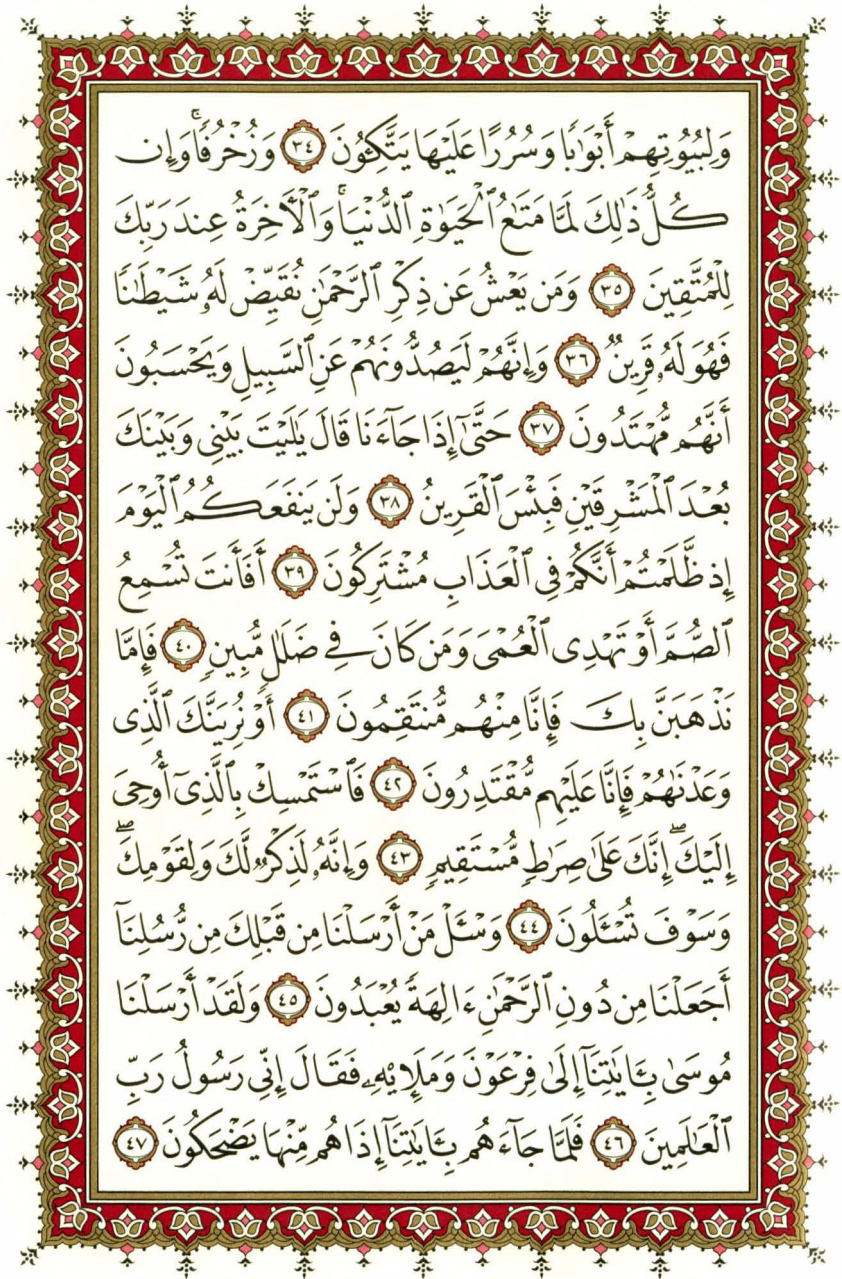 وَلِبُيُوتِهِمْ أَبْوَٰبًا وَسُرُرًا عَلَيْهَا يَتَّكِـُٔونَ ٣٤ وَزُخْرُفًا ۚ وَإِن
كُلُّ ذَٰلِكَ لَمَّا مَتَـٰعُ ٱلْحَيَوٰةِ ٱلدُّنْيَا ۚ وَٱلْـَٔاخِرَةُ عِندَ رَبِّكَ
لِلْمُتَّقِينَ ٣٥ وَمَن يَعْشُ عَن ذِكْرِ ٱلرَّحْمَـٰنِ نُقَيِّضْ لَهُۥ شَيْطَـٰنًا
فَهُوَ لَهُۥ قَرِينٌ ٣٦ وَإِنَّهُمْ لَيَصُدُّونَهُمْ عَنِ ٱلسَّبِيلِ وَيَحْسَبُونَ
أَنَّهُم مُّهْتَدُونَ ٣٧ حَتَّىٰٓ إِذَا جَآءَنَا قَالَ يَـٰلَيْتَ بَيْنِى وَبَيْنَكَ
بُعْدَ ٱلْمَشْرِقَيْنِ فَبِئْسَ ٱلْقَرِينُ ٣٨ وَلَن يَنفَعَكُمُ ٱلْيَوْمَ
إِذ ظَّلَمْتُمْ أَنَّكُمْ فِى ٱلْعَذَابِ مُشْتَرِكُونَ ٣٩ أَفَأَنتَ تُسْمِعُ
ٱلصُّمَّ أَوْ تَهْدِى ٱلْعُمْىَ وَمَن كَانَ فِى ضَلَـٰلٍ مُّبِينٍ ٤٠ فَإِمَّا
نَذْهَبَنَّ بِكَ فَإِنَّا مِنْهُم مُّنتَقِمُونَ ٤١ أَوْ نُرِيَنَّكَ ٱلَّذِى
وَعَدْنَـٰهُمْ فَإِنَّا عَلَيْهِم مُّقْتَدِرُونَ ٤٢ فَٱسْتَمْسِكْ بِٱلَّذِىٓ أُوحِىَ
إِلَيْكَ ۖ إِنَّكَ عَلَىٰ صِرَٰطٍ مُّسْتَقِيمٍ ٤٣ وَإِنَّهُۥ لَذِكْرٌ لَّكَ وَلِقَوْمِكَ ۖ
وَسَوْفَ تُسْـَٔلُونَ ٤٤ وَسْـَٔلْ مَنْ أَرْسَلْنَا مِن قَبْلِكَ مِن رُّسُلِنَآ
أَجَعَلْنَا مِن دُونِ ٱلرَّحْمَـٰنِ ءَالِهَةً يُعْبَدُونَ ٤٥ وَلَقَدْ أَرْسَلْنَا
مُوسَىٰ بِـَٔايَـٰتِنَآ إِلَىٰ فِرْعَوْنَ وَمَلَإِي۟هِۦ فَقَالَ إِنِّى رَسُولُ رَبِّ
ٱلْعَـٰلَمِينَ ٤٦ فَلَمَّا جَآءَهُم بِـَٔايَـٰتِنَآ إِذَا هُم مِّنْهَا يَضْحَكُونَ ٤٧